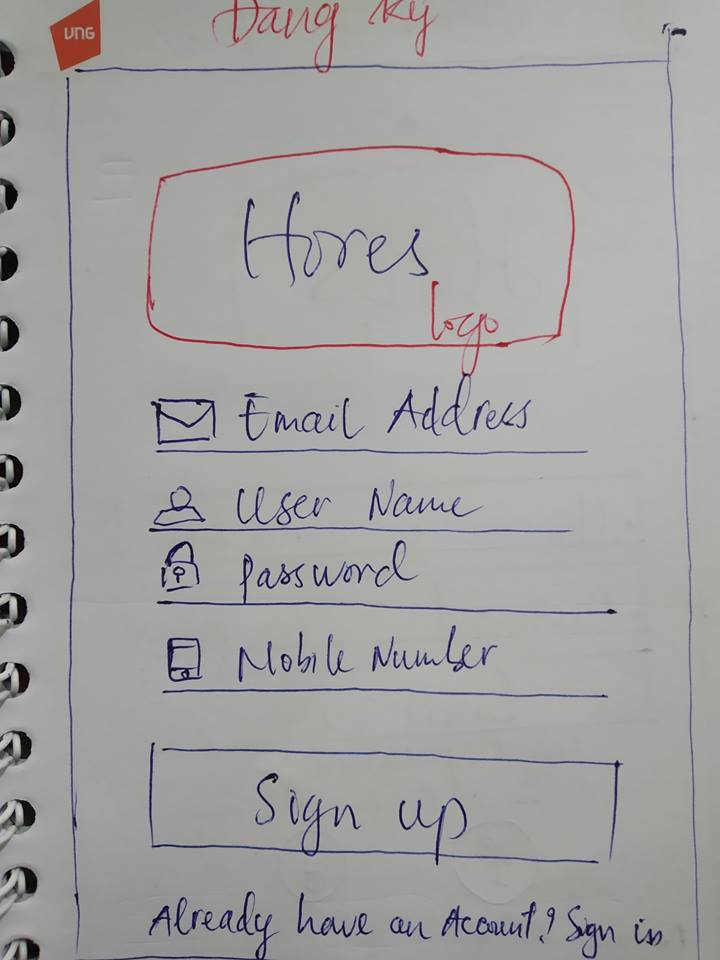 VNG
Đăng ký
Hores
logo
Email Address
User Name
Password
Mobile Number
Sign up
Already have an Account? Sign in